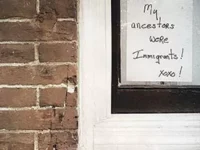 My
ancestors
were
Immigrants!
xoxo!